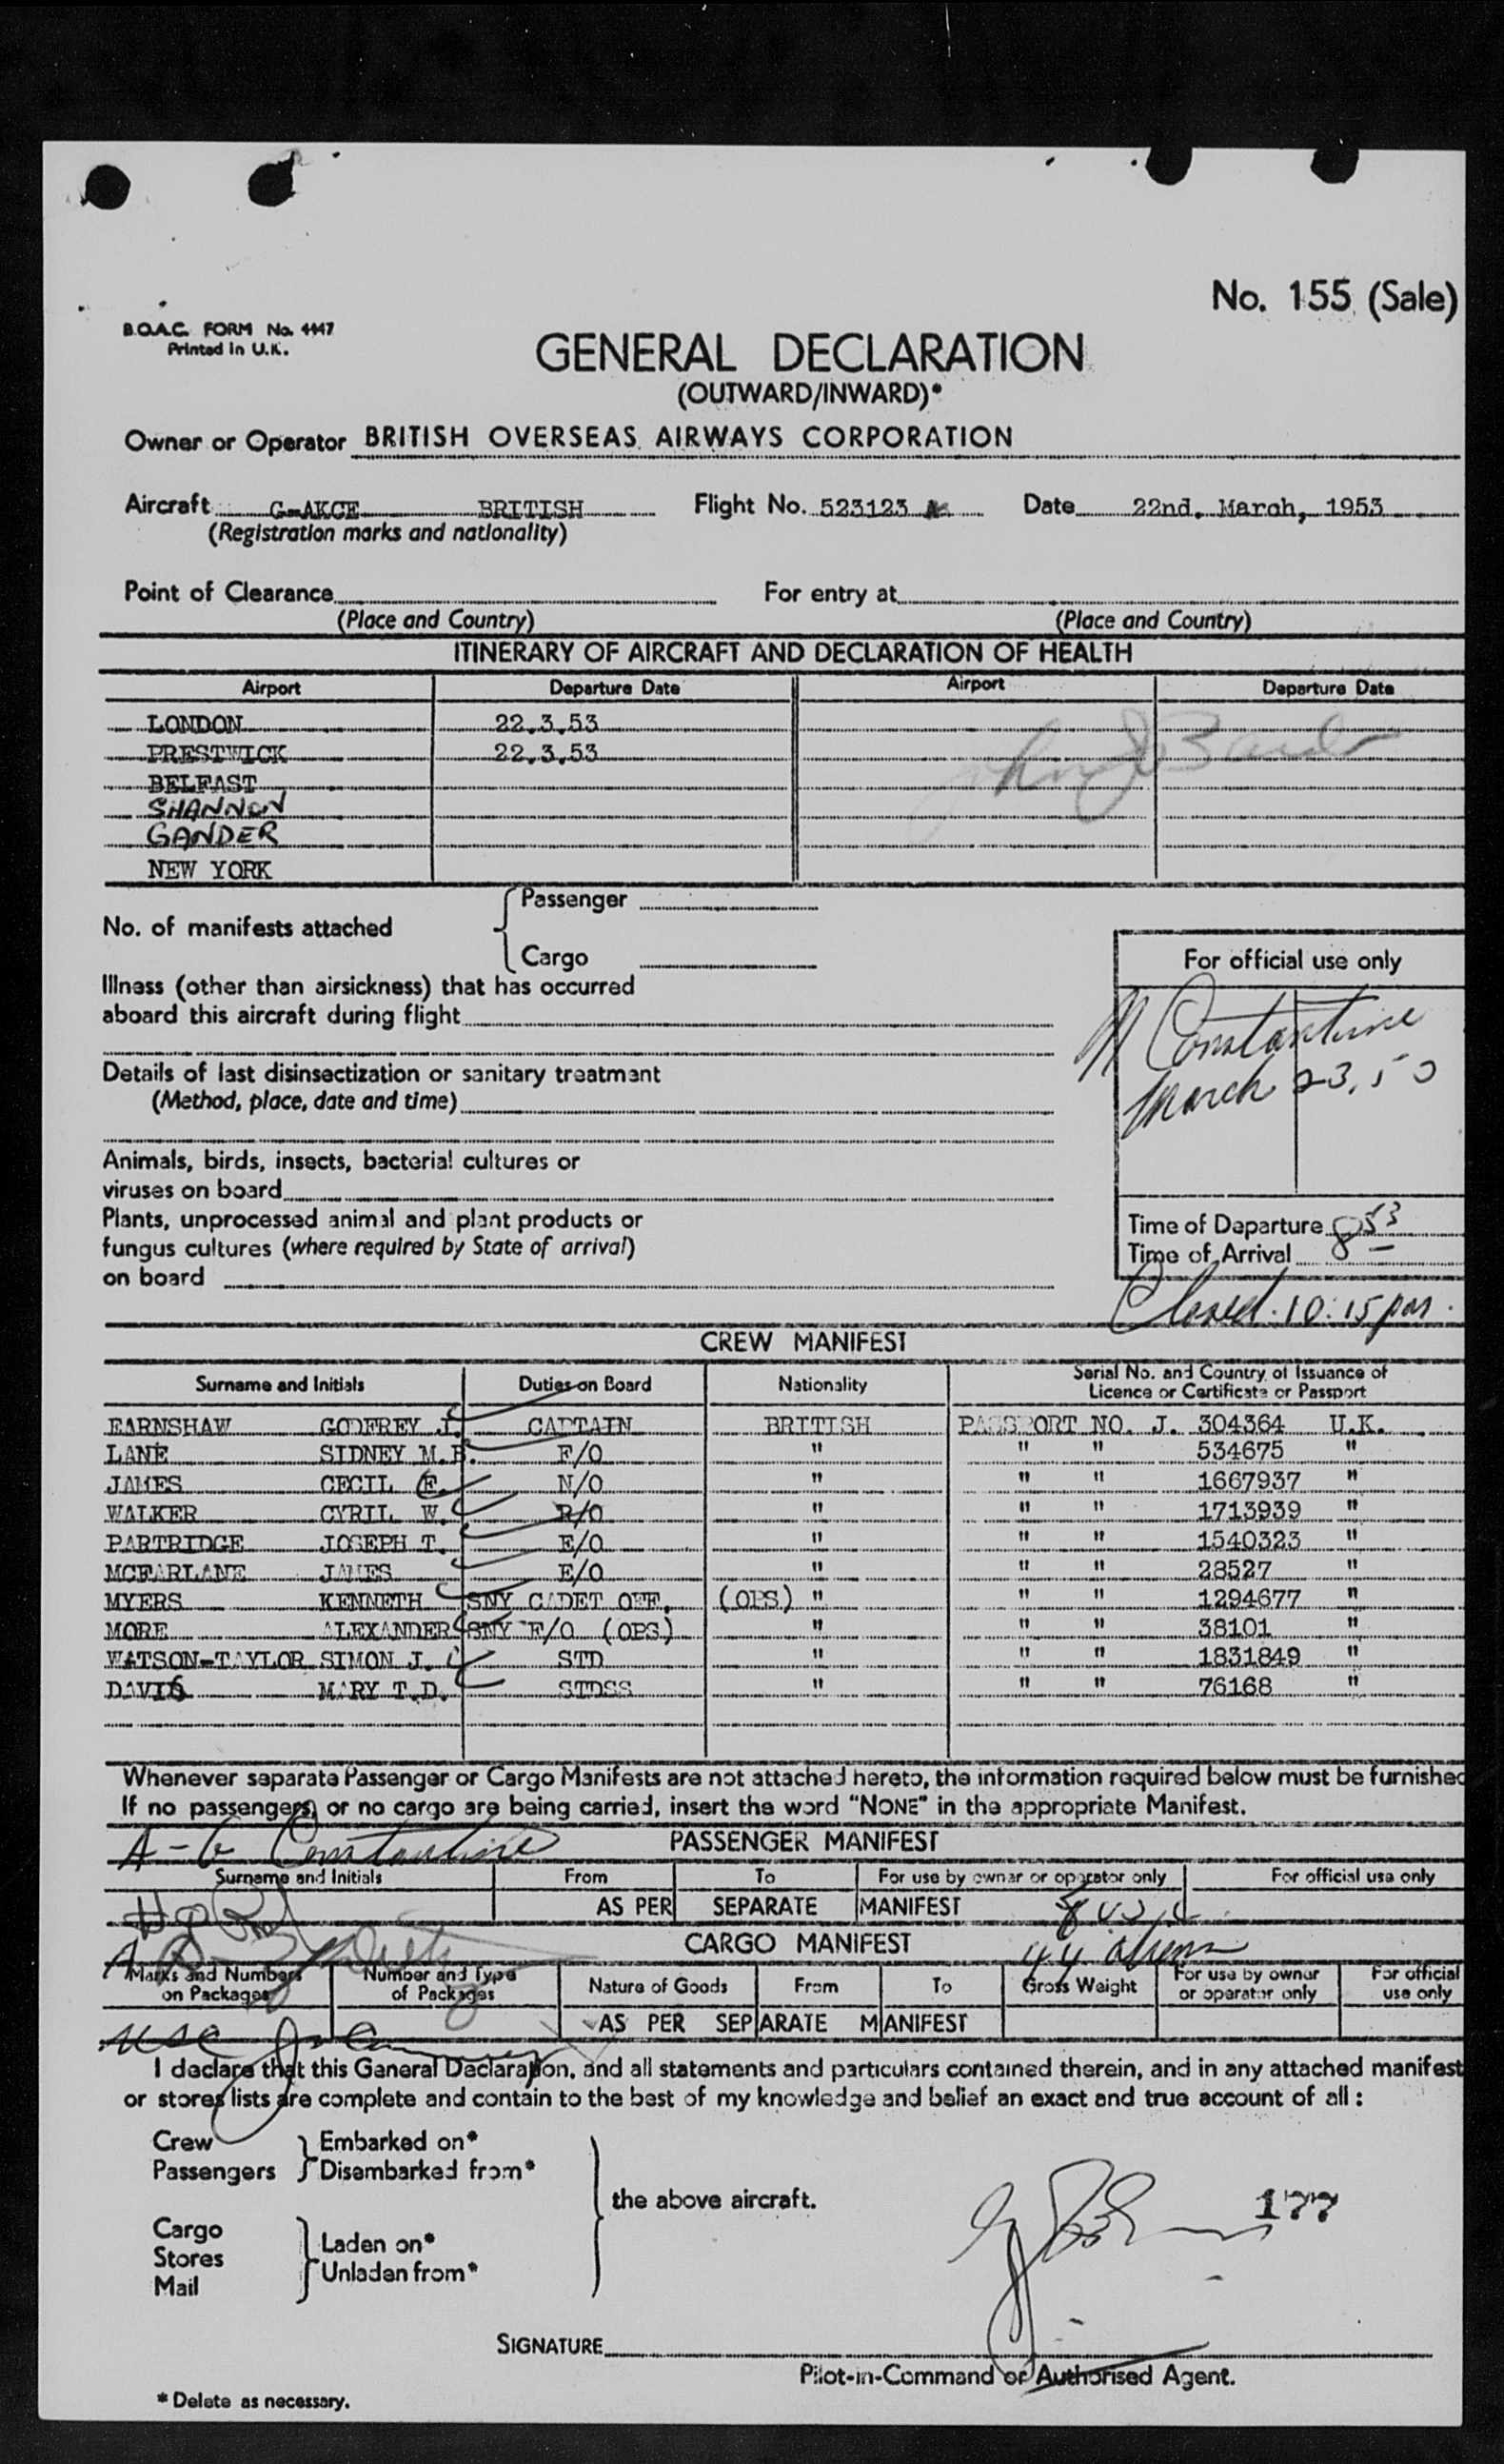 No. 155 (Sale)
B.O.A.C. FORM No. 4447
Printed in U.K.
GENERAL DECLARATION
(OUTWARD/INWARD)*
Owner or Operator BRITISH OVERSEAS AIRWAYS CORPORATION
Aircraft G-AKCE BRITISH Flight No. 523123 Date 22nd. March, 1953
(Registration marks and nationality)
Point of Clearance For entry at
(Place and Country) (Place and Country)
ITINERARY OF AIRCRAFT AND DECLARATION OF HEALTH
Airport Departure Date Airport Departure Date
LONDON 22.3.53
PRESTWICK 22.3.53
BELFAST
SHANNON
GANDER
NEW YORK
No. of manifests attached Passenger
Cargo
For official use only
Illness (other than airsickness) that has occurred
aboard this aircraft during flight
Constantine
March 23, 53
Details of last disinsectization or sanitary treatment
(Method, place, date and time)
Animals, birds, insects, bacterial cultures or
viruses on board
Plants, unprocessed animal and plant products or
fungus cultures (where required by State of arrival)
on board
Time of Departure 8 53
Time of Arrival
Closed. 10:15 pm.
CREW MANIFEST
Surname and Initials Duties on Board Nationality Serial No. and Country of Issuance of
Licence or Certificate or Passport
EARNSHAW GODFREY J. CAPTAIN BRITISH PASSPORT NO. J. 304364 U.K.
LANE SIDNEY M.B. F/O " " " 534675 "
JAMES CECIL E. N/O " " " 1667937 "
WALKER CYRIL W. R/O " " " 1713939 "
PARTRIDGE JOSEPH T. E/O " " " 1540323 "
MCFARLANE JAMES E/O " " " 28527 "
MYERS KENNETH SNY CADET OFF. (OPS) " " " 1294677 "
MORE ALEXANDER SNY F/O (OPS) " " " 38101 "
WATSON-TAYLOR SIMON J. STD " " " 1831849 "
DAVIS MARY T.D. STDSS " " " 76168 "
Whenever separate Passenger or Cargo Manifests are not attached hereto, the information required below must be furnished
If no passengers, or no cargo are being carried, insert the word "NONE" in the appropriate Manifest.
Constantine
PASSENGER MANIFEST
Surname and Initials From To For use by owner or operator only For official use only
AS PER SEPARATE MANIFEST
CARGO MANIFEST
Marks and Numbers on Packages Number and Type of Packages Nature of Goods From To Gross Weight For use by owner or operator only For official use only
AS PER SEPARATE MANIFEST
I declare that this General Declaration, and all statements and particulars contained therein, and in any attached manifest
or stores lists are complete and contain to the best of my knowledge and belief an exact and true account of all :
Crew Embarked on*
Passengers Disembarked from*
the above aircraft.
177
Cargo
Stores Laden on*
Mail Unladen from*
SIGNATURE
Pilot-in-Command or Authorised Agent.
* Delete as necessary.